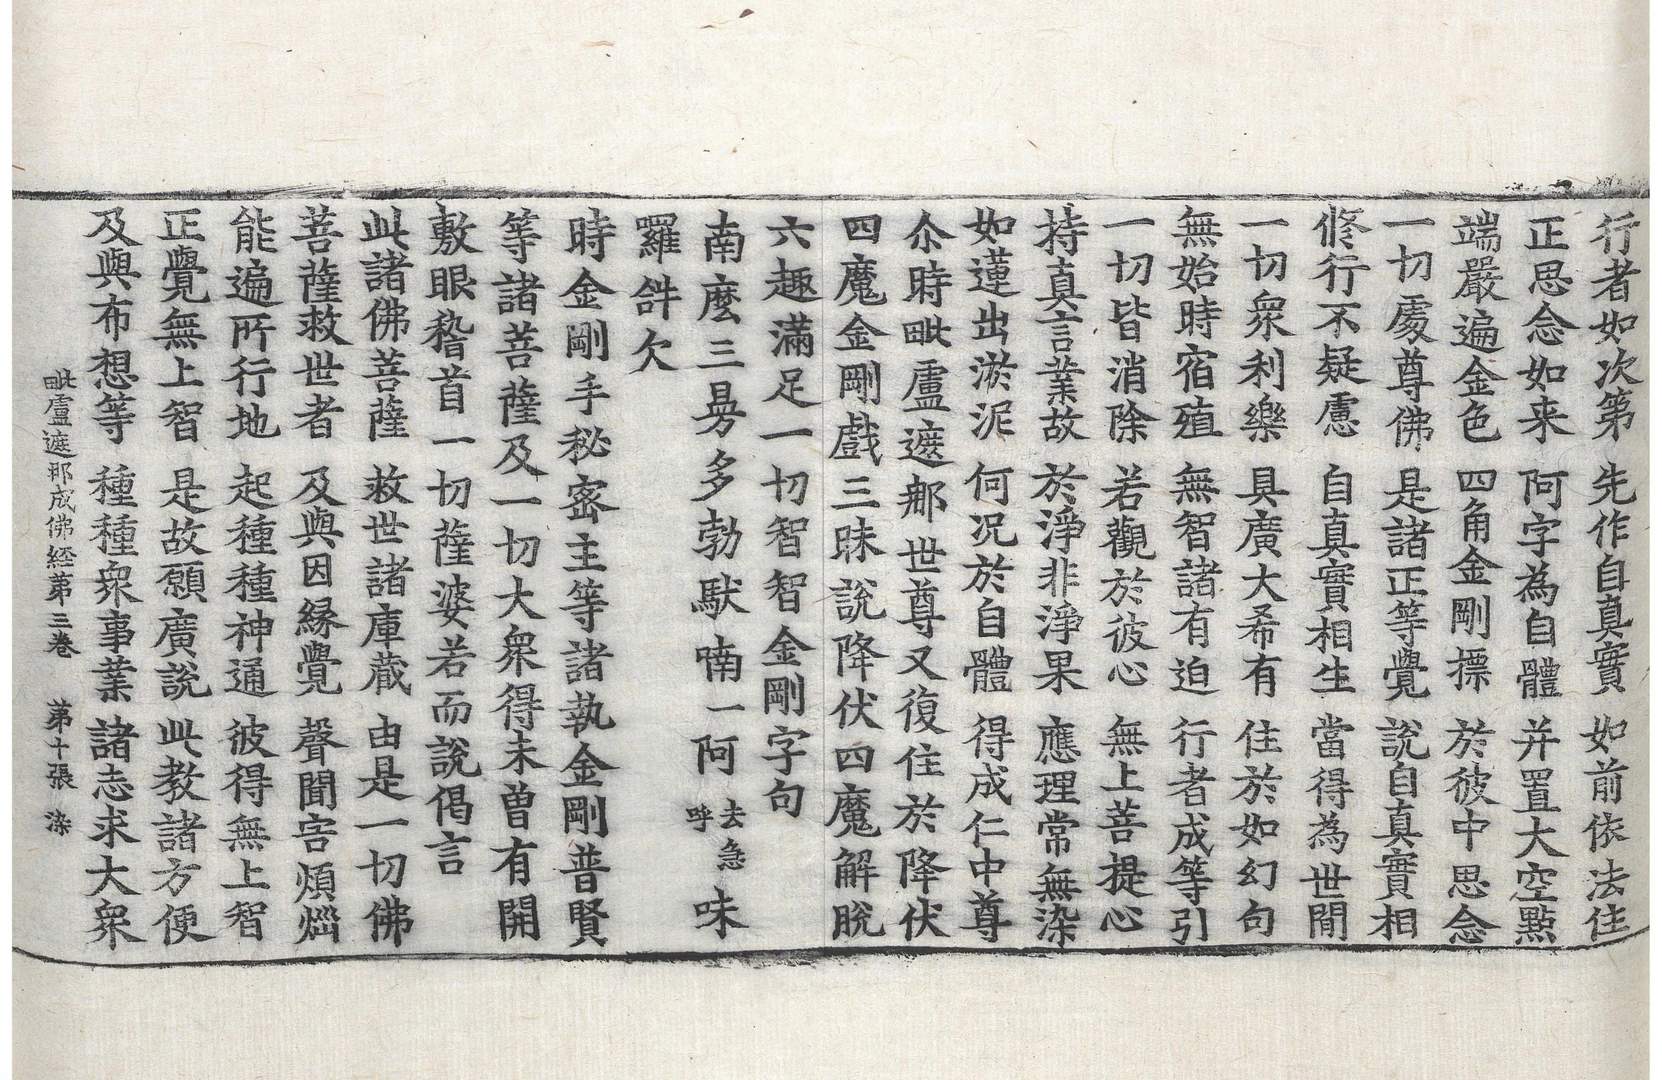 行者如次第　先作自真實　如前依法住
正思念如来　阿字為自體　并置大空點
端嚴遍金色　四角金剛摽　於彼中思念
一切處尊佛　是諸正等覺　說自真實相
修行不疑慮　自真實相生　當得為世間
一切衆利樂　具廣大希有　住於如幻句
無始時宿殖　無智諸有迫　行者成等引
一切皆消除　若觀於彼心　無上菩提心
持真言業故　於淨非淨果　應理常無染
如蓮出淤泥　何况於自體　得成仁中尊
尒時毗盧遮那世尊又復住於降伏
四魔金剛戲三昧說降伏四魔解脫
六趣滿足一切智智金剛字句
南麽三曼多勃馱喃一阿去急呼味
羅䤈欠
時金剛手秘密主等諸執金剛普賢
等諸菩薩及一切大衆得未曾有開
敷眼稽首一切薩婆若而說偈言
此諸佛菩薩　救世諸庫蔵　由是一切佛
菩薩救世者　及與因縁覺　聲聞害煩惱
能遍所行地　起種種神通　彼得無上智
正覺無上智　是故願廣說　此教諸方便
及與布想等　種種衆事業　諸志求大衆
毗盧遮那成佛經第三卷　第十張　染